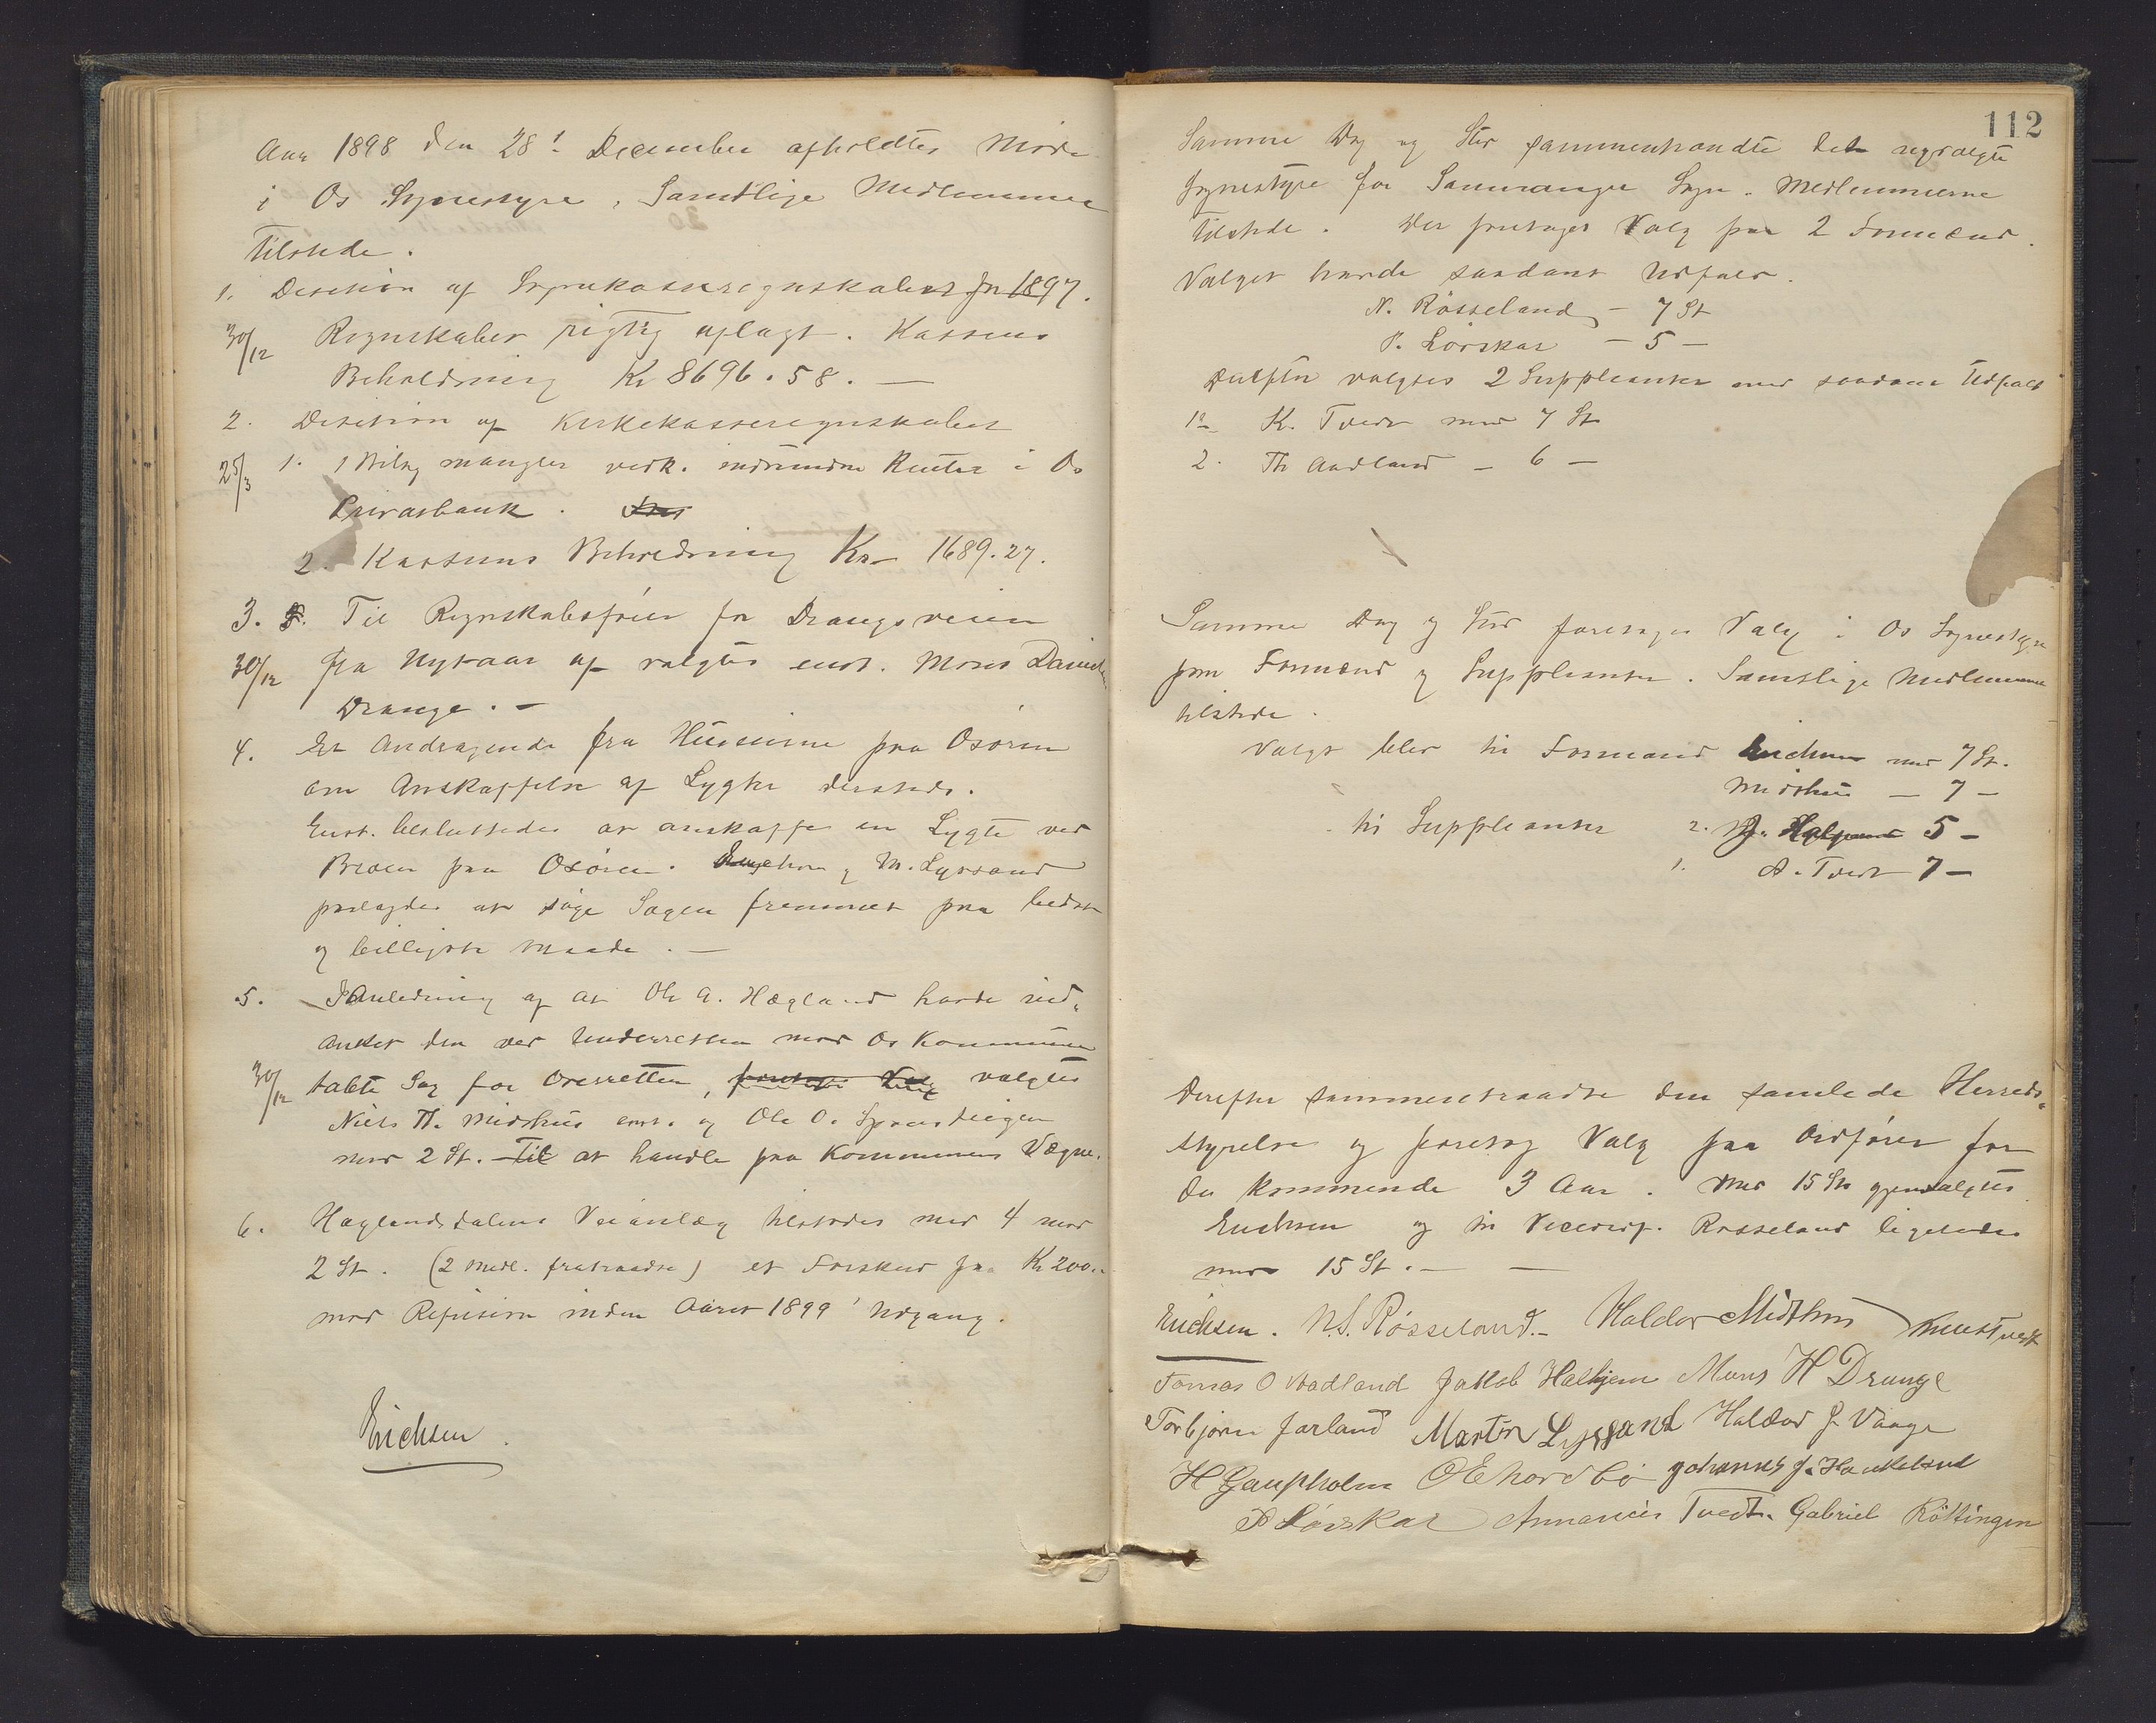 Aar 1898 den 28de December afholdtes Møde
i Os Sognestyre, Samtlige Medlemmer
tilstede.
1. Decision af Sognekasseregnskabet for 1897.
30/12 Regnskabet rigtig aflagt. Kassens
Beholdning Kr 8696.58. —
2. Decision af Kirkekasseregnskabet
25/3 1. 1 Bilag mangler vedk. indvundne Renter i Os
Privatbank.
2. Kassens Beholdning Kr 1689.27.
3. Til Regnskabsfører for Drangsveien
30/12 fra Nytaar af valgtes enst. Mons Daniels
Drange. —
4. Et Andragende fra Huseierne paa Osøren
om Anskaffelse af Lygter dersteds.
Enst. besluttedes at anskaffe en Lygte ved
Broen paa Osøren. og M. Lyssand
paalagdes at søge Sagen fremmet paa bedste
og billigste Maade. —
5. I Anledning af at Ole A. Hægland havde ind-
anket den ved Underretten mod Os Kommune
30/12 tabte Sag for Overretten, foretoges Valg valgtes
Niels Th. Midthus enst. og Ole O. Spanstveigen
med 2 St. Til at handle paa Kommunens Vægne.
6. Hæglandsdalens Veianlæg tilstodes med 4 mod
2 St. (2 Medl. fratraadte) et Forskud paa Kr 200..
mod Refusion inden Aaret 1899' Udgang.
Erichsen.
112
Samme Dag og Sted sammentraadte det nyvalgte
Sognestyre for Samnanger Sogn. Medlemmerne
tilstede. Der foretoges Valg paa 2 Formænd.
Valget havde saadant Udfald.
N. Røsseland — 7 St
P. Lønskar — 5 —
Derefter valgtes 2 Suppleanter med saadant Udfald
1. K. Tvedt med 7 St
2. Th Aadland — 6 —
Samme Dag og Sted foretoges Valg i Os Sognestyre
paa Formænd og Suppleanter. Samtlige Medlemmer
tilstede.
Valgt blev til Formænd Erichsen med 7 St.
Midthus — 7 —
til Suppleanter 2. J. Halhjem 5 —
1. A. Tvedt 7 —
Derefter sammentraadte den samlede Herreds-
styrelse og foretog Valg paa Ordfører for
de kommende 3 Aar. Med 15 St gjenvalgtes
Erichsen og til Viceordf. Røsseland ligeledes
med 15 St. — —
Erichsen. N.S. Røsseland. — Haldor Midthus Knut Tvedt
Tomas O Aadland Jakob Halhjem Mons H Drange
Torbjørn Jarland Martin Lyssand Haldor J. Vaage
H Gaupholm O E hordbø Johannes J. Haukeland
P Lønskar Annanias Tvedt. Gabriel Røttingen